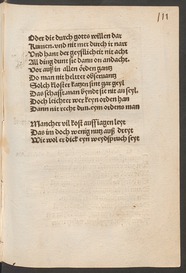 111
Oder die durch gotts willen dar
Kumen, vnd nit me durch it narr
Vnd hant der geystlicheit nie acht
All ding dunt sie dann on andacht
Vor auß in allen örden gantz
Do man nit heltet obseruantz
Solch kloster katzen sint gar geyl
Das schafft man byndt sie nit an seyl
Doch leichter wer keyn orden han
Dann nit recht dun eym ordens man
Mancher vil kost auff
Das im doch wenig nutz auß dreyt
Wie wol er dick eyn weydspruch seyt